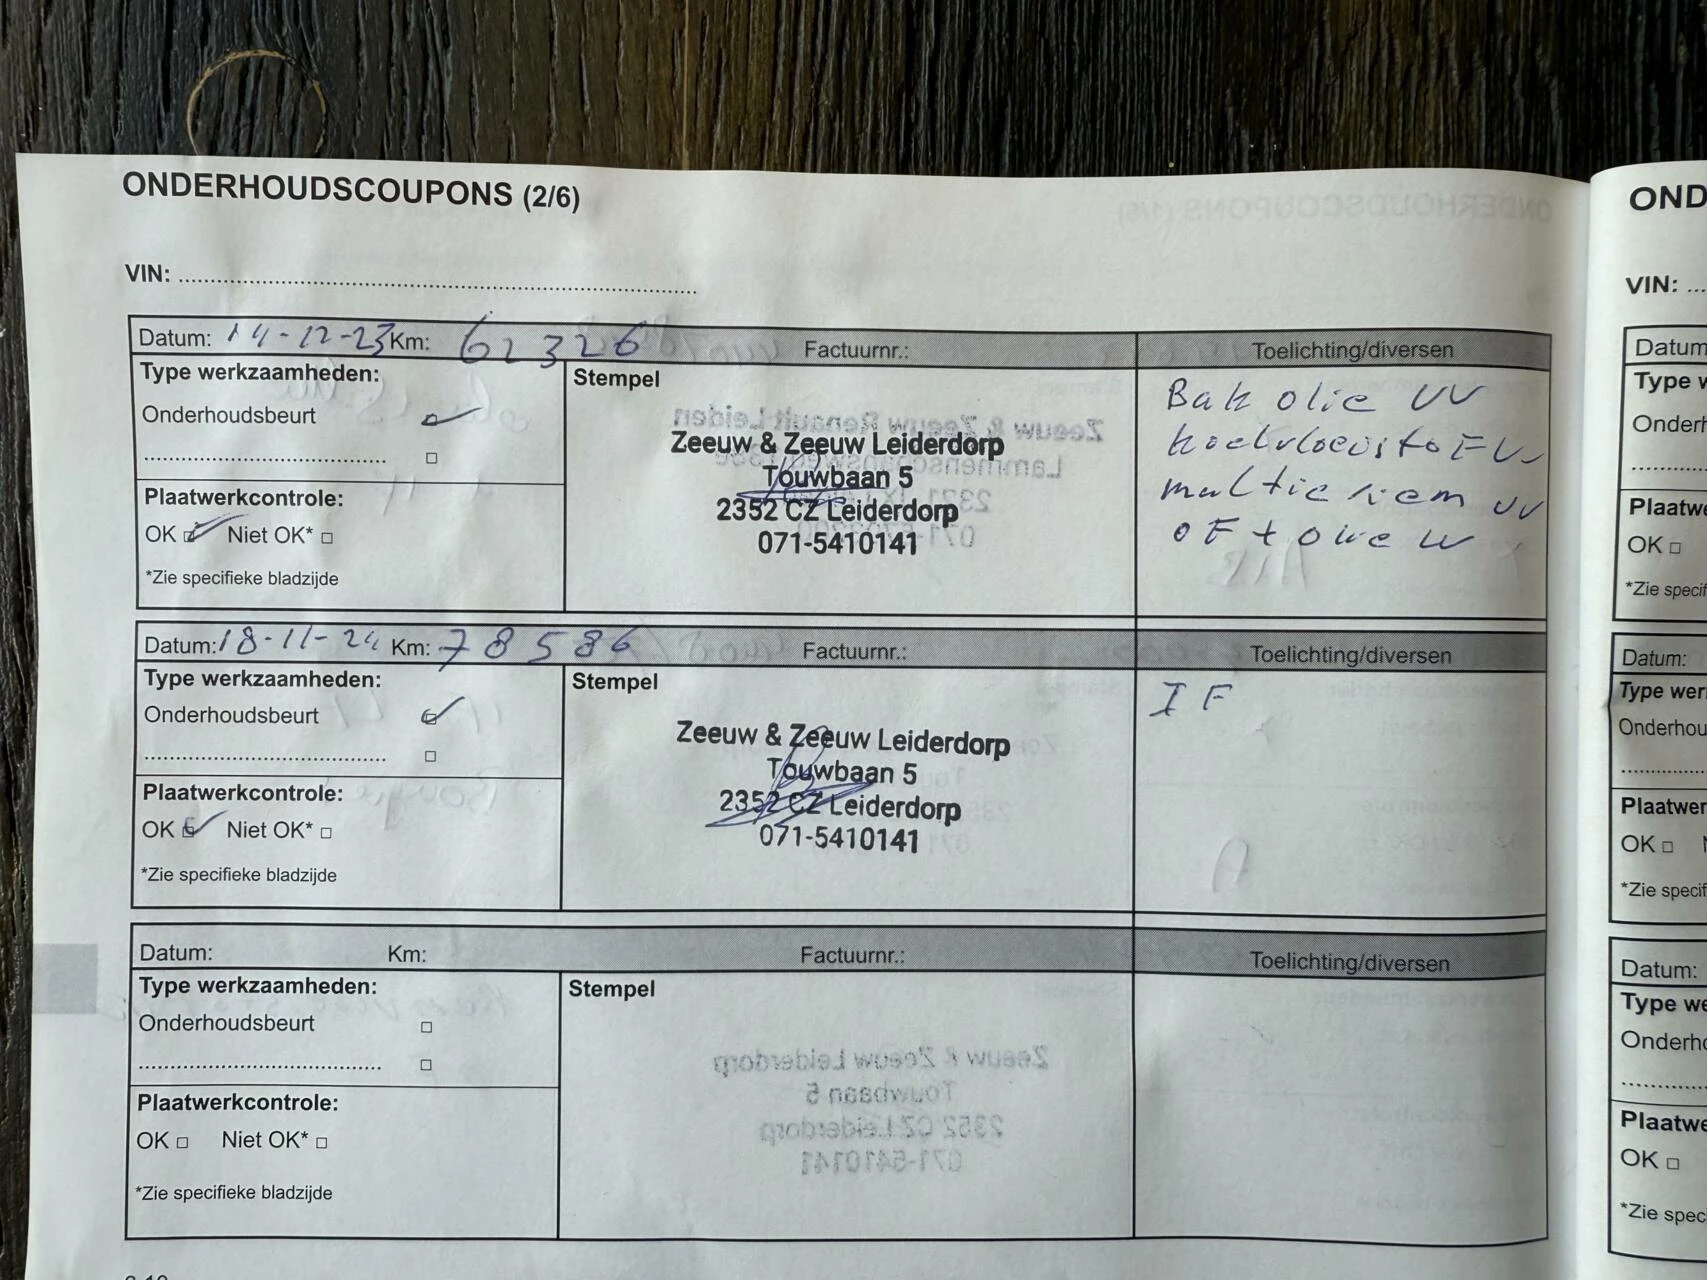 ONDERHOUDSCOUPONS (2/6)
VIN:
Datum: 14-12-23 Km: 62326 Factuurnr.: Toelichting/diversen
Type werkzaamheden: Stempel
Onderhoudsbeurt
Plaatwerkcontrole:
OK Niet OK*
*Zie specifieke bladzijde
Zeeuw & Zeeuw Leiderdorp
Touwbaan 5
2352 CZ Leiderdorp
071-5410141
Bak olie VV
koelvloeistof VV
multie riem VV
OF + olie VV
Datum: 18-11-24 Km: 78586 Factuurnr.: Toelichting/diversen
Type werkzaamheden: Stempel
Onderhoudsbeurt
Plaatwerkcontrole:
OK Niet OK*
*Zie specifieke bladzijde
Zeeuw & Zeeuw Leiderdorp
Touwbaan 5
2352 CZ Leiderdorp
071-5410141
IF
Datum: Km: Factuurnr.: Toelichting/diversen
Type werkzaamheden: Stempel
Onderhoudsbeurt
Plaatwerkcontrole:
OK Niet OK*
*Zie specifieke bladzijde
OND
VIN:
Datum
Type w
Onderh
Plaatwe
OK
*Zie specif
Datum:
Type wer
Onderhou
Plaatwer
OK
*Zie specif
Datum:
Type we
Onderho
Plaatwe
OK
*Zie spec